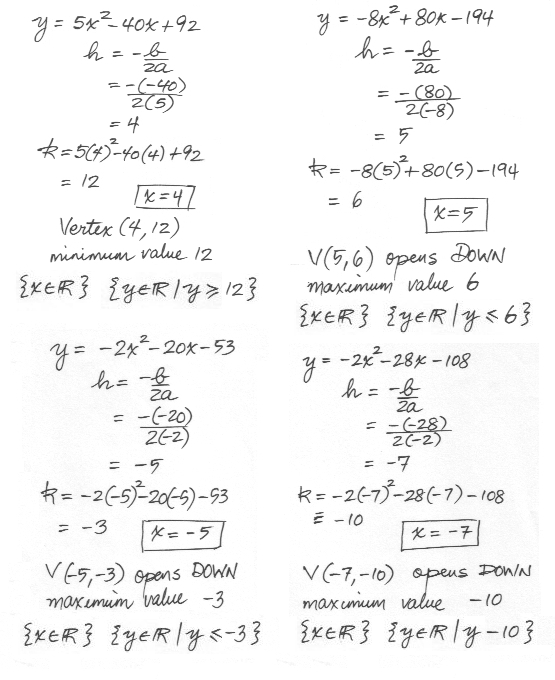 y = 5x² - 40x + 92
h = -b/2a
= -(-40)/2(5)
= 4
k = 5(4)² - 40(4) + 92
= 12
x = 4
Vertex (4, 12)
minimum value 12
{x∈ℝ} {y∈ℝ | y ≥ 12}
y = -8x² + 80x - 194
h = -b/2a
= -(80)/2(-8)
= 5
k = -8(5)² + 80(5) - 194
= 6
x = 5
V(5, 6) opens DOWN
maximum value 6
{x∈ℝ} {y∈ℝ | y ≤ 6}
y = -2x² - 20x - 53
h = -b/2a
= -(-20)/2(-2)
= -5
k = -2(-5)² - 20(-5) - 53
= -3
x = -5
V(-5, -3) opens DOWN
maximum value -3
{x∈ℝ} {y∈ℝ | y ≤ -3}
y = -2x² - 28x - 108
h = -b/2a
= -(-28)/2(-2)
= -7
k = -2(-7)² - 28(-7) - 108
= -10
x = -7
V(-7, -10) opens DOWN
maximum value -10
{x∈ℝ} {y∈ℝ | y - 10}